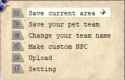 Save current area
Save your pet team
Change your team name
Make custom NPC
Upload
Setting